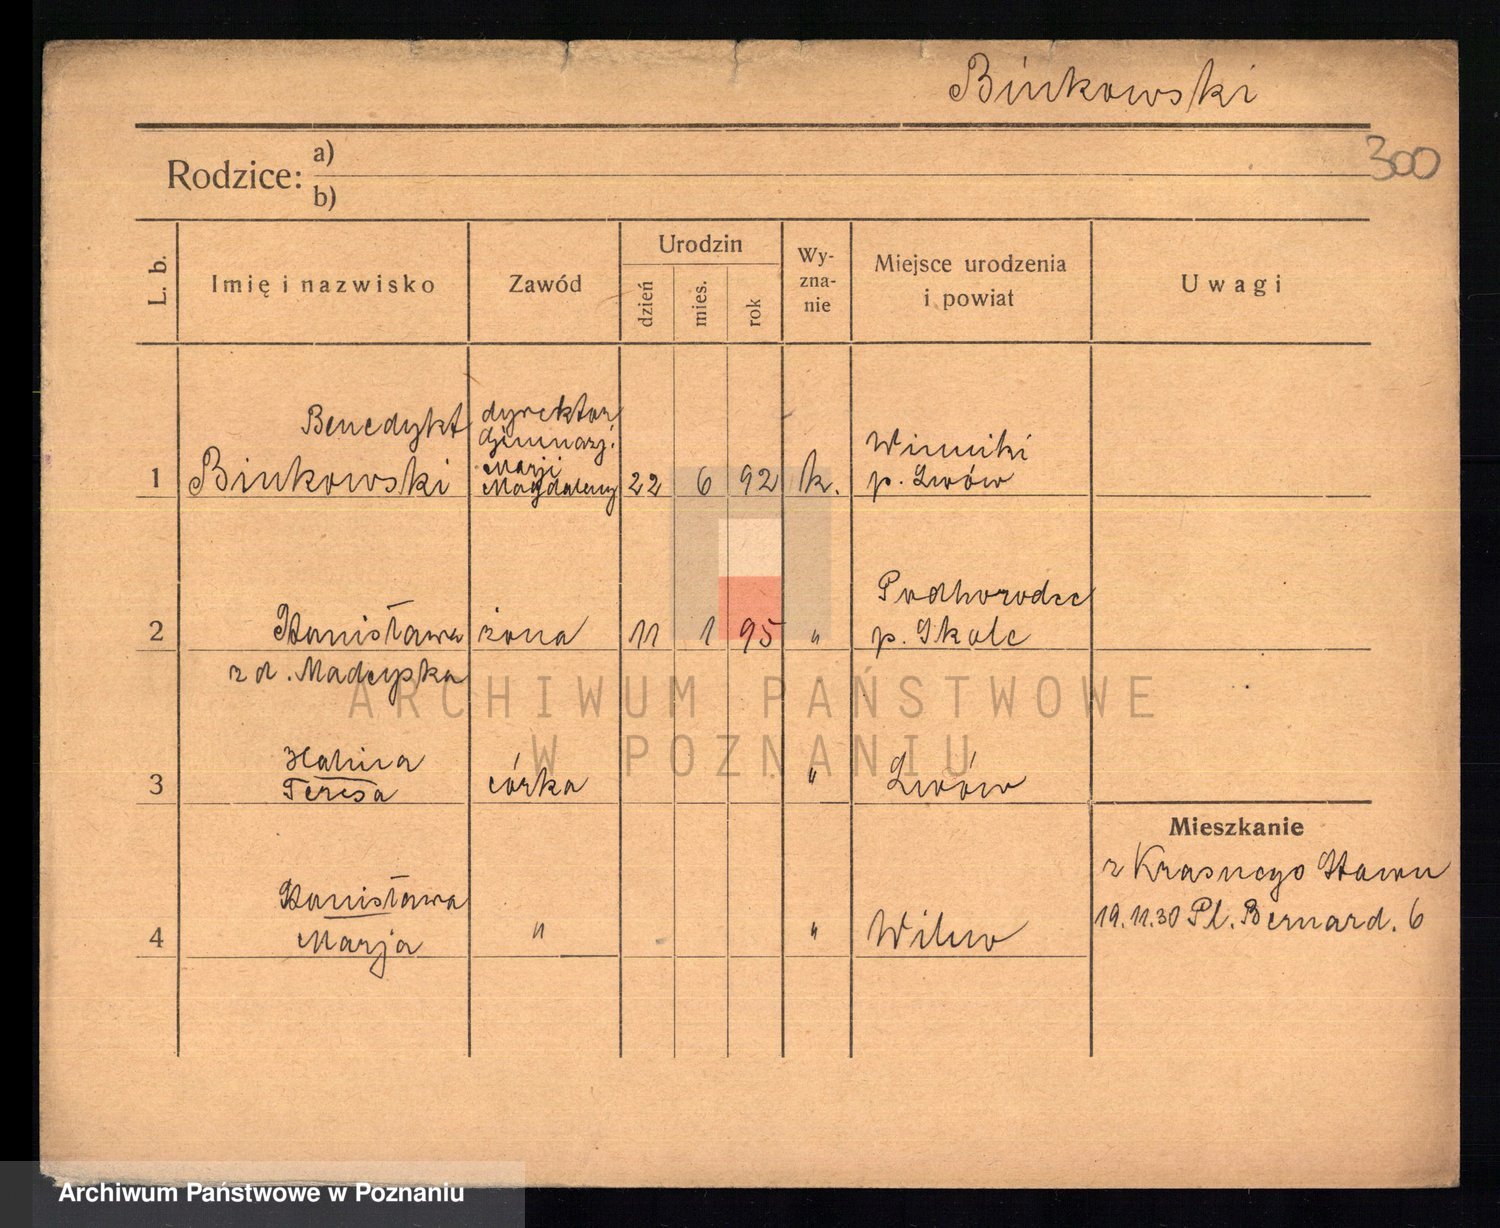 Binkowski
300
Rodzice: a)
b)
L. b.
Imię i nazwisko
Zawód
Urodzin
dzień
mies.
rok
Wy-
zna-
nie
Miejsce urodzenia
i powiat
Uwagi
1
Benedykt
Binkowski
dyrektor
Gimnazj.
Marji
Magdaleny
22 6 92 k.
Winniki
p. Lwów
2
Stanisława
z d. Madeyska
żona
11 1 95 "
Podhorodce
p. Skole
3
Halina
Teresa
córka
"
Lwów
4
Stanisława
Marja
"
"
Wilno
Mieszkanie
z Krasnego Stawu
19.11.30 Pl. Bernard. 6
ARCHIWUM PAŃSTWOWE
W POZNANIU
Archiwum Państwowe w Poznaniu